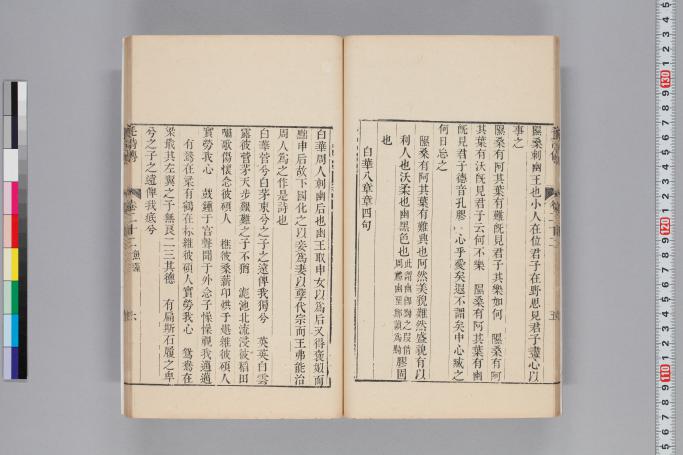 隰桑刺幽王也小人在位君子在野思見君子盡心以
事之
隰桑有阿其葉有難既見君子其樂如何 隰桑有阿
其葉有沃既見君子云何不樂 隰桑有阿其葉有幽
既見君子德音孔膠 心乎愛矣遐不謂矣中心臧之
何日忘之
隰桑有阿其葉有難興也阿然美貌難然盛貌有以
利人也沃柔也幽黑色也 膠固
也
白華八章章四句
白華周人刺幽后也幽王取申女以爲后又得褒姒而
黜申后故下國化之以妾爲妻以孼代宗而王弗能治
周人爲之作是詩也
白華菅兮白茅束兮之子之遠俾我獨兮 英英白雲
露彼菅茅天步艱難之子不猶 滮池北流浸彼稻田
嘯歌傷懷念彼碩人 樵彼桑薪卬烘于煁維彼碩人
實勞我心 鼓鍾于宮聲聞于外念子懆懆視我邁邁
有鶖在梁有鶴在林維彼碩人實勞我心 鴛鴦在
梁戢其左翼之子無良二三其德 有扁斯石履之卑
兮之子之遠俾我疧兮
卷二十二
六